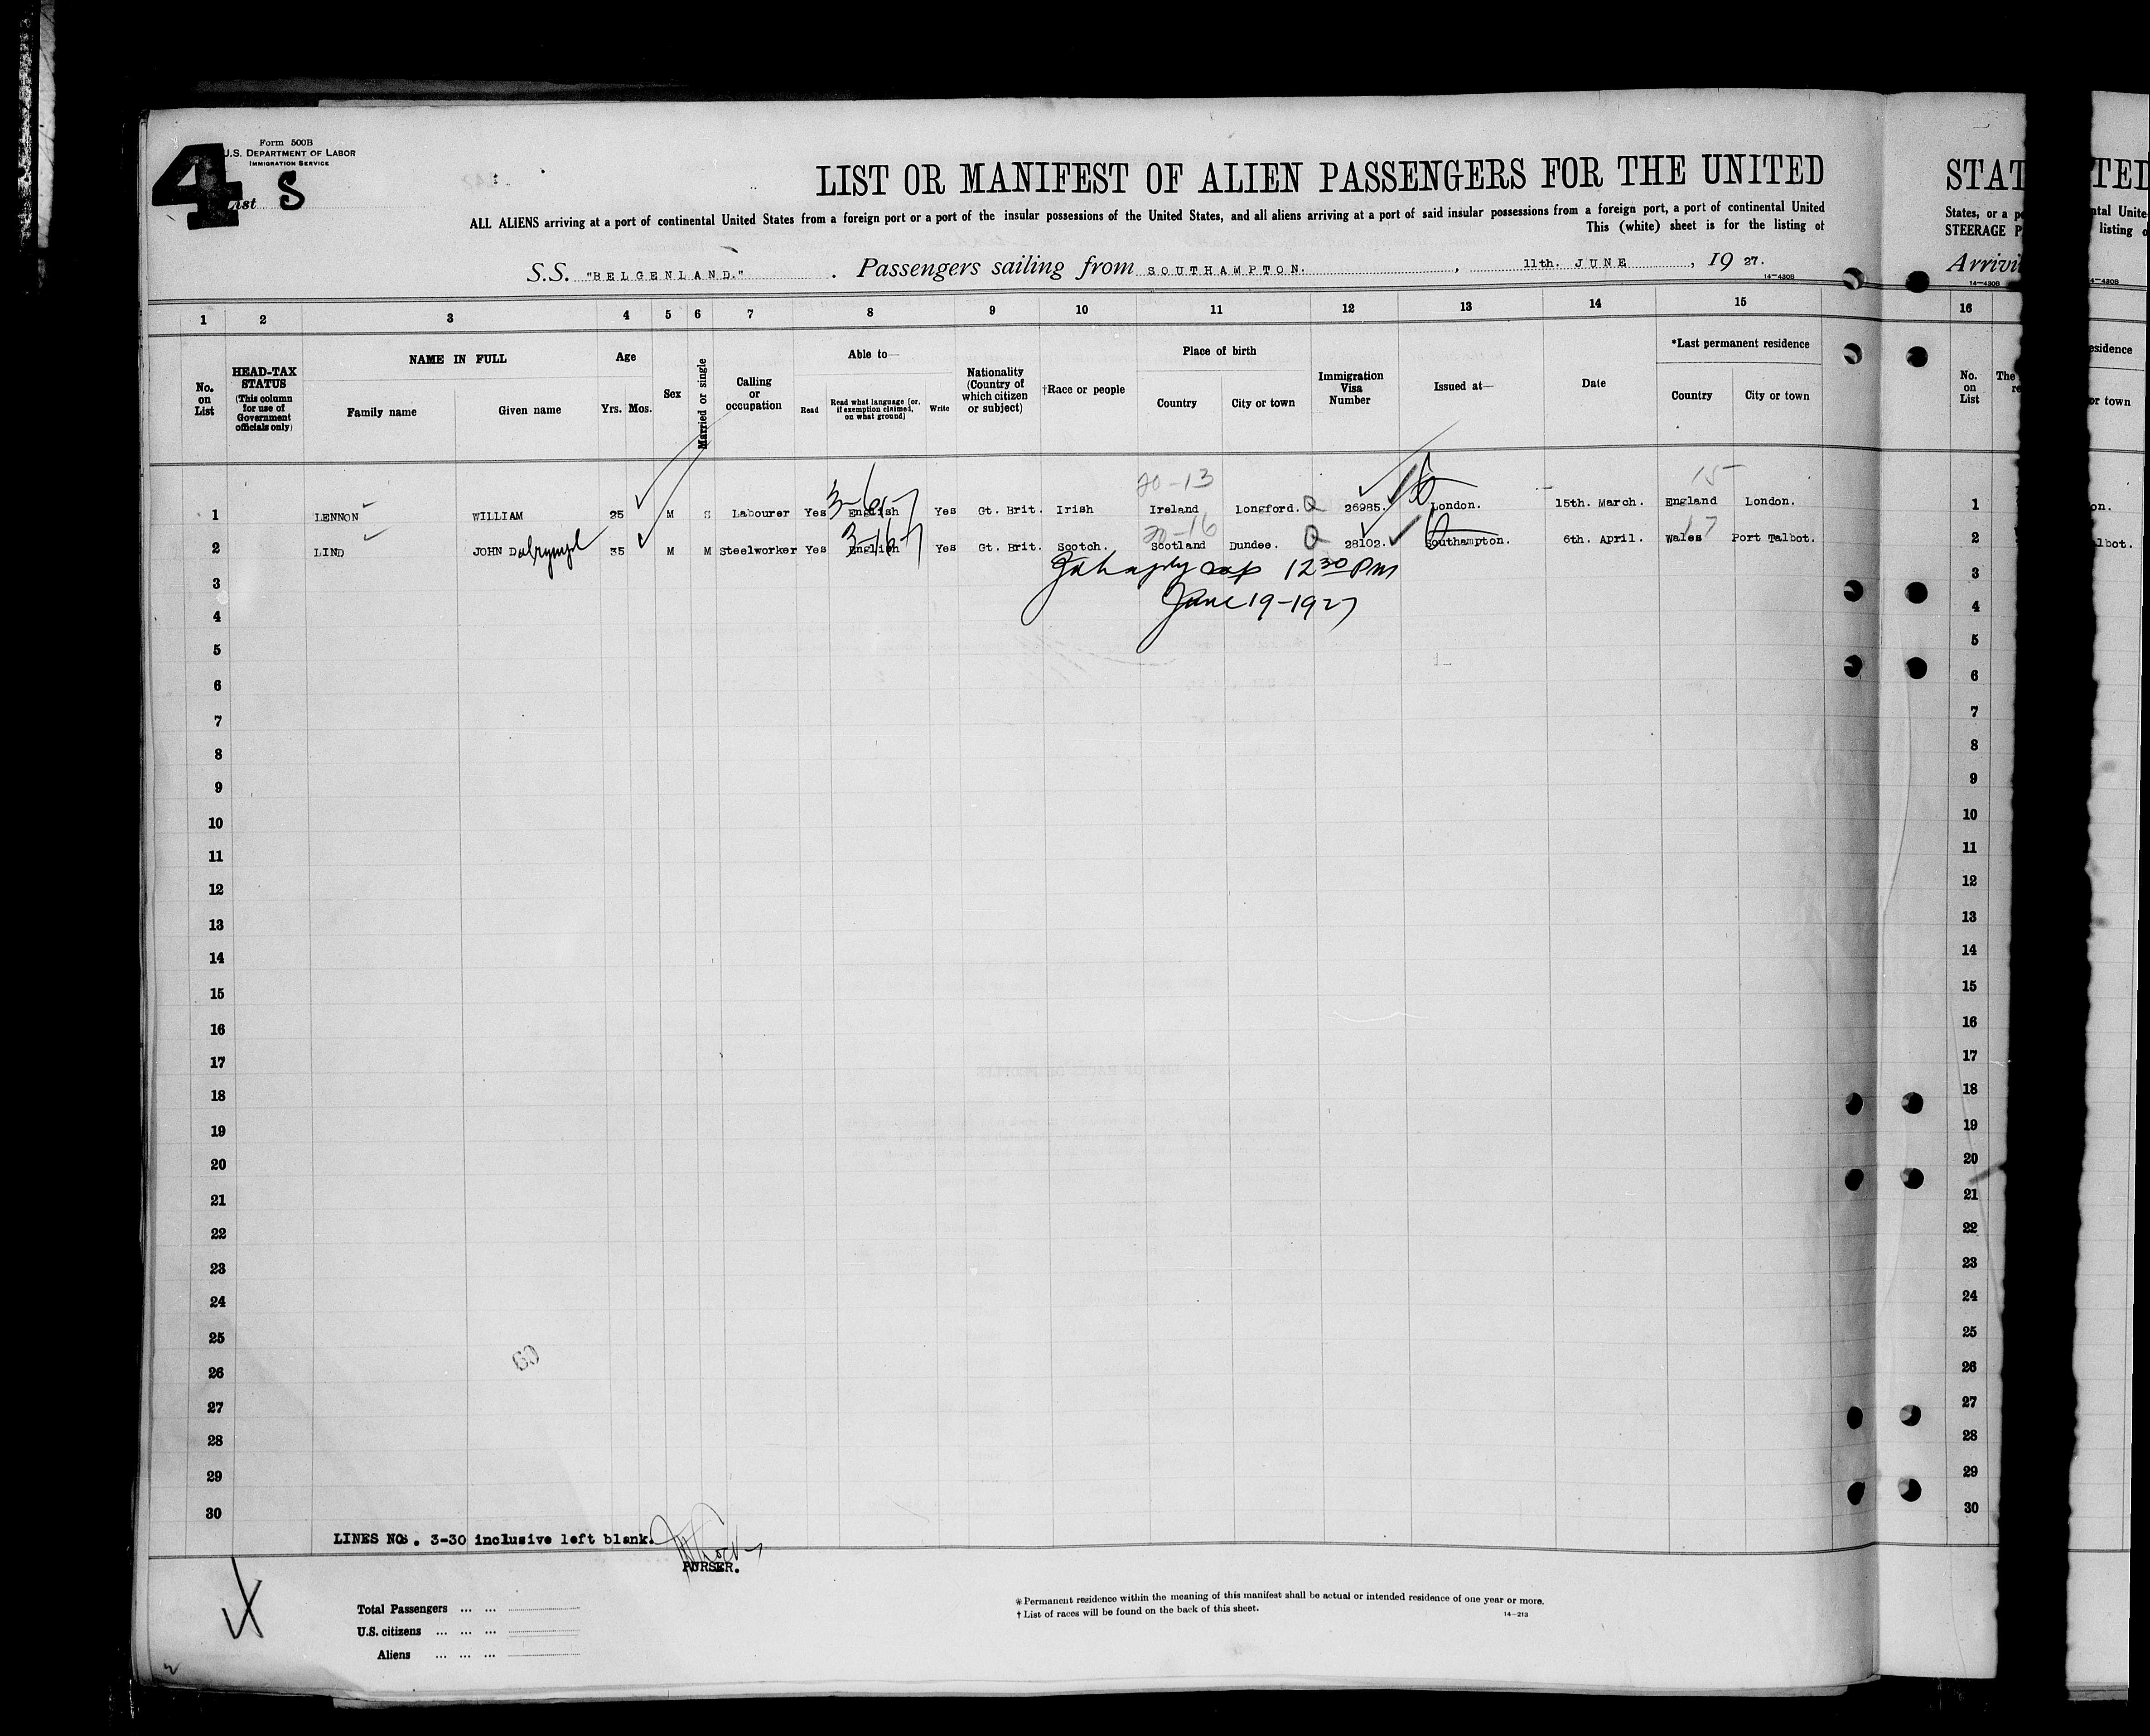 4
Form 500B
U.S. DEPARTMENT OF LABOR
IMMIGRATION SERVICE
List S
LIST OR MANIFEST OF ALIEN PASSENGERS FOR THE UNITED
ALL ALIENS arriving at a port of continental United States from a foreign port or a port of the insular possessions of the United States, and all aliens arriving at a port of said insular possessions from a foreign port, a port of continental United
This (white) sheet is for the listing of
S.S. "BELGENLAND." Passengers sailing from SOUTHAMPTON. , 11th. JUNE , 19 27.
14-430B
1 2 3 4 5 6 7 8 9 10 11 12 13 14 15
No. on List
HEAD-TAX STATUS (This column for use of Government officials only)
NAME IN FULL
Family name Given name
Age
Yrs. Mos.
Sex
Married or single
Calling or occupation
Able to—
Read
Read what language (or, if exemption claimed, on what ground)
Write
Nationality (Country of which citizen or subject)
†Race or people
Place of birth
Country City or town
Immigration Visa Number
Issued at—
Date
*Last permanent residence
Country City or town
20-13 15
1 LENNON WILLIAM 25 M S Labourer Yes English Yes Gt. Brit. Irish Ireland Longford. Q 26985. London. 15th. March. England London.
20-16 17
2 LIND JOHN Dalrympl 35 M M Steelworker Yes English Yes Gt. Brit. Scotch. Scotland Dundee. Q 28102. Southampton. 6th. April. Wales Port Talbot.
3 12 30 PM
4 June 19-1927
5
6
7
8
9
10
11
12
13
14
15
16
17
18
19
20
21
22
23
24
25
60
26
27
28
29
30
LINES NOS. 3-30 inclusive left blank.
PURSER.
Total Passengers ... ...
U.S. citizens ... ... ...
Aliens ... ... ...
*Permanent residence within the meaning of this manifest shall be actual or intended residence of one year or more.
†List of races will be found on the back of this sheet.
14-213
STAT
States, or a p
STEERAGE P
Arrivi
14-430B
16
No. on List
The
re
1
2
3
4
5
6
7
8
9
10
11
12
13
14
15
16
17
18
19
20
21
22
23
24
25
26
27
28
29
30
TED
ntal Unite
listing o
4-430B
esidence
or town
on.
lbot.